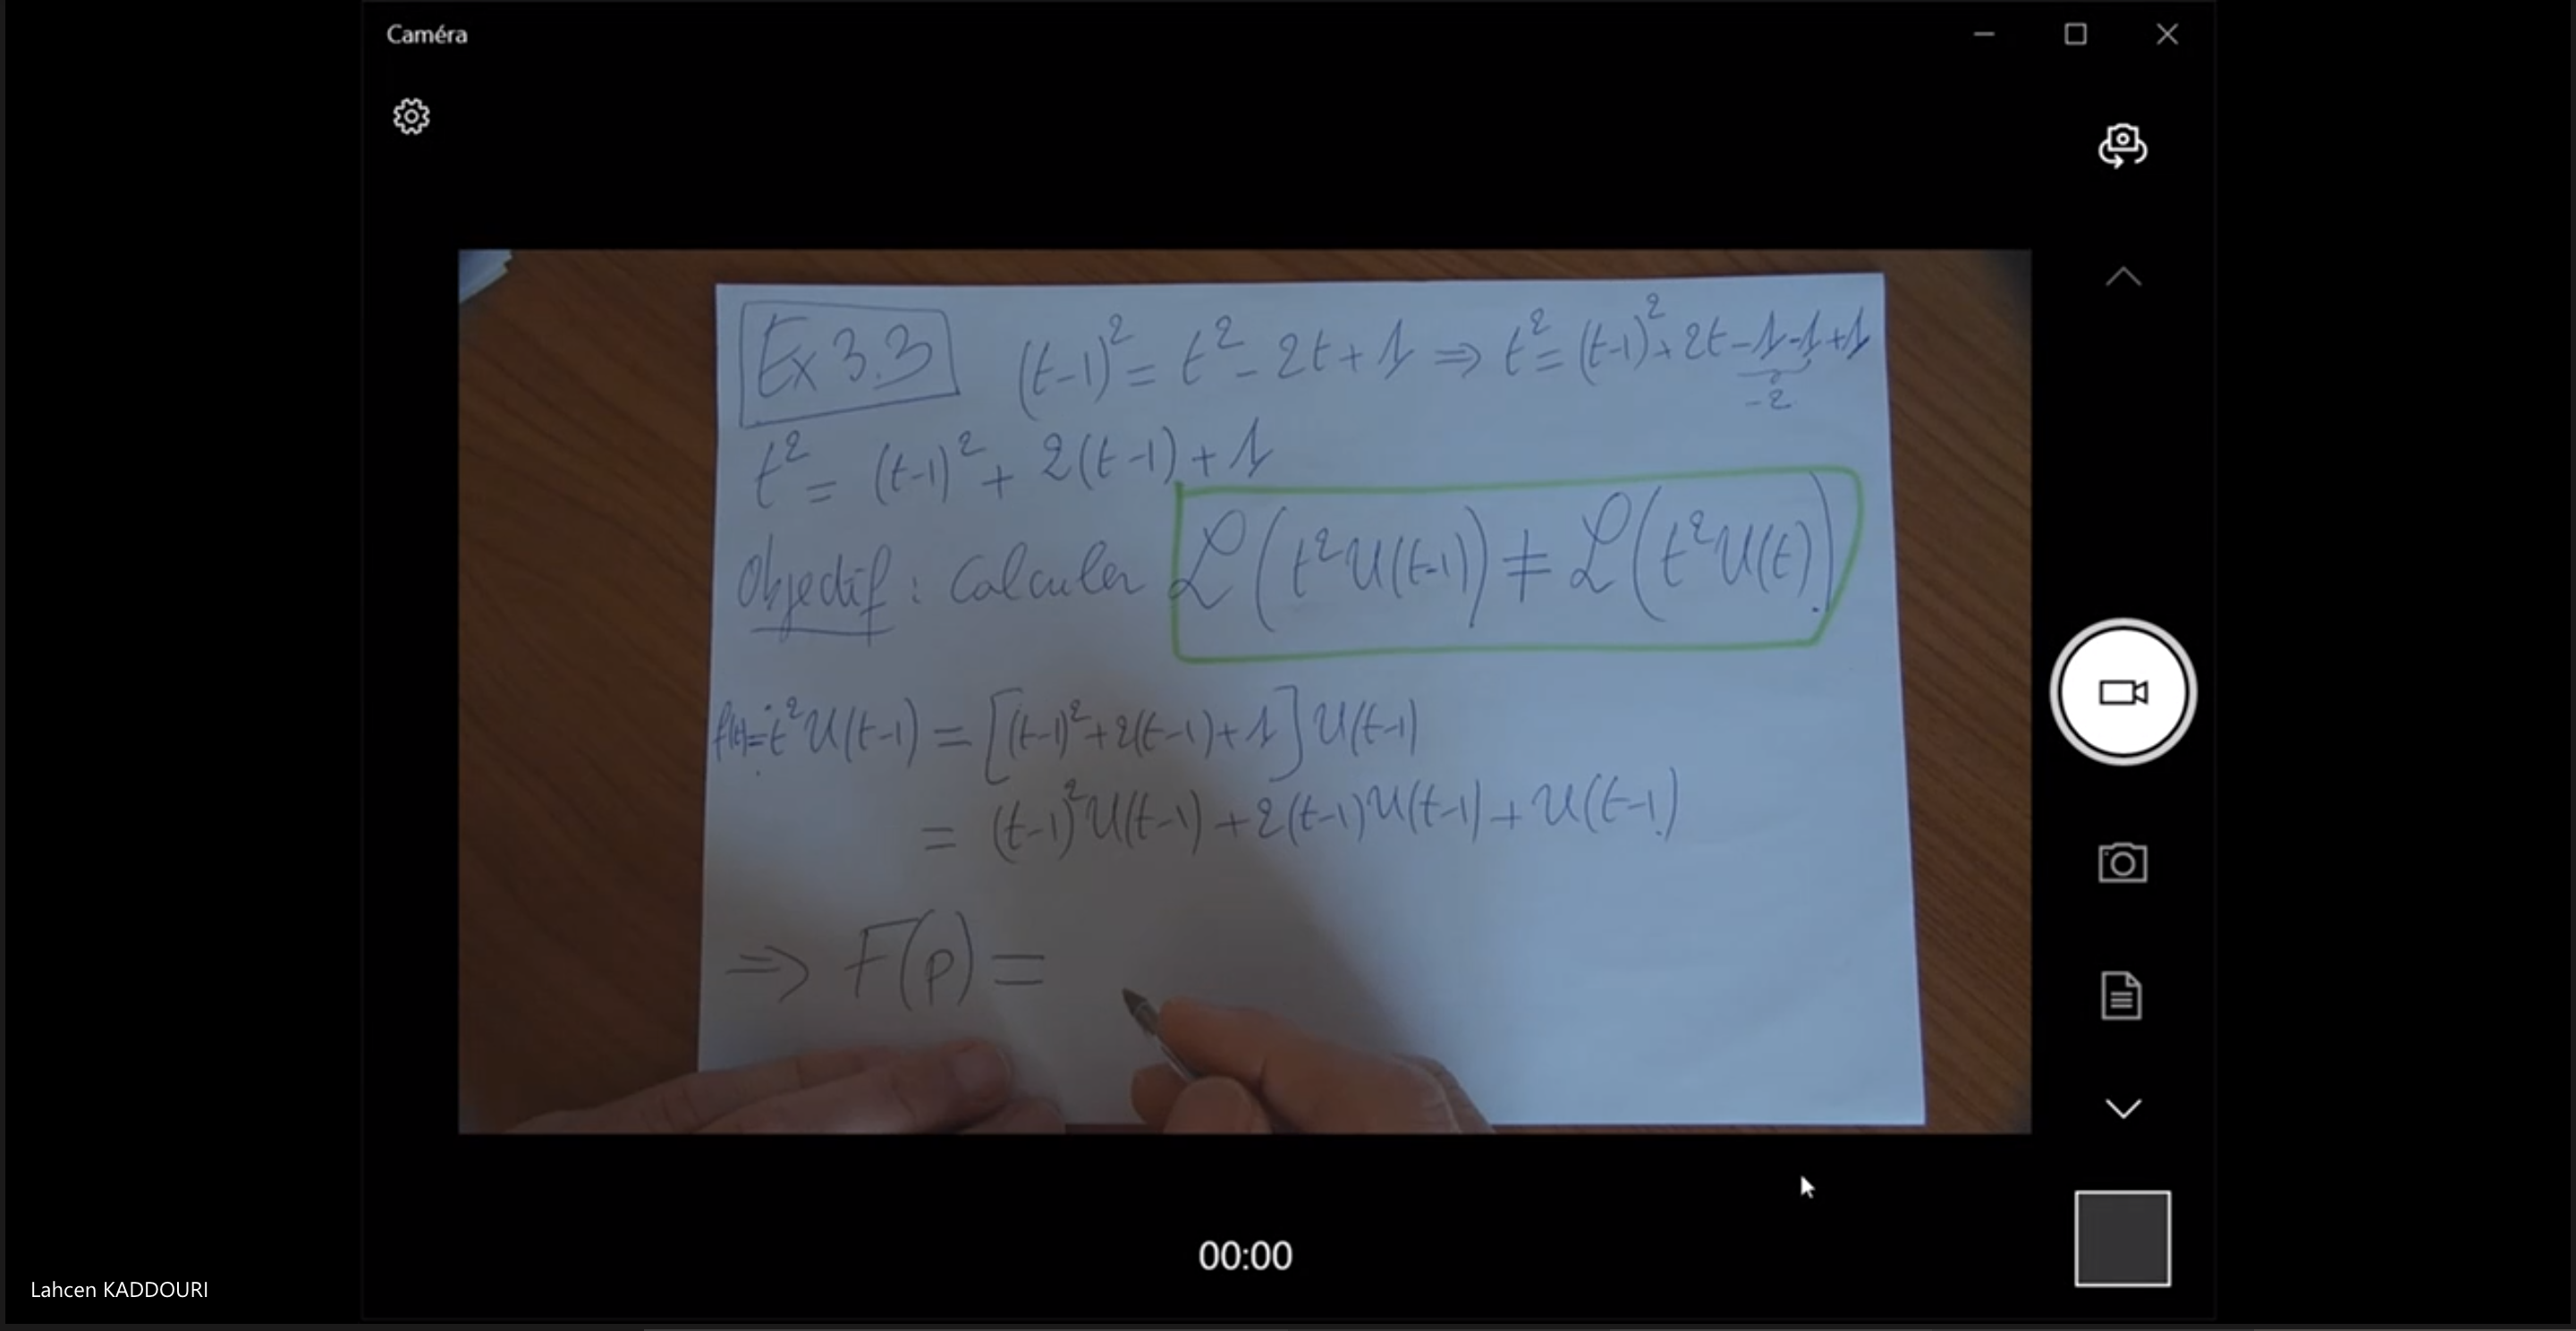 Caméra
Ex 3.3 (t-1)² = t² - 2t + 1 ⇒ t² = (t-1)² + 2t - 1 - 1 + 1
-2
t² = (t-1)² + 2(t-1) + 1
Objectif : Calculer ℒ(t²U(t-1)) ≠ ℒ(t²U(t))
f(t) = t²U(t-1) = [(t-1)² + 2(t-1) + 1] U(t-1)
= (t-1)²U(t-1) + 2(t-1)U(t-1) + U(t-1)
⇒ F(p) =
00:00
Lahcen KADDOURI